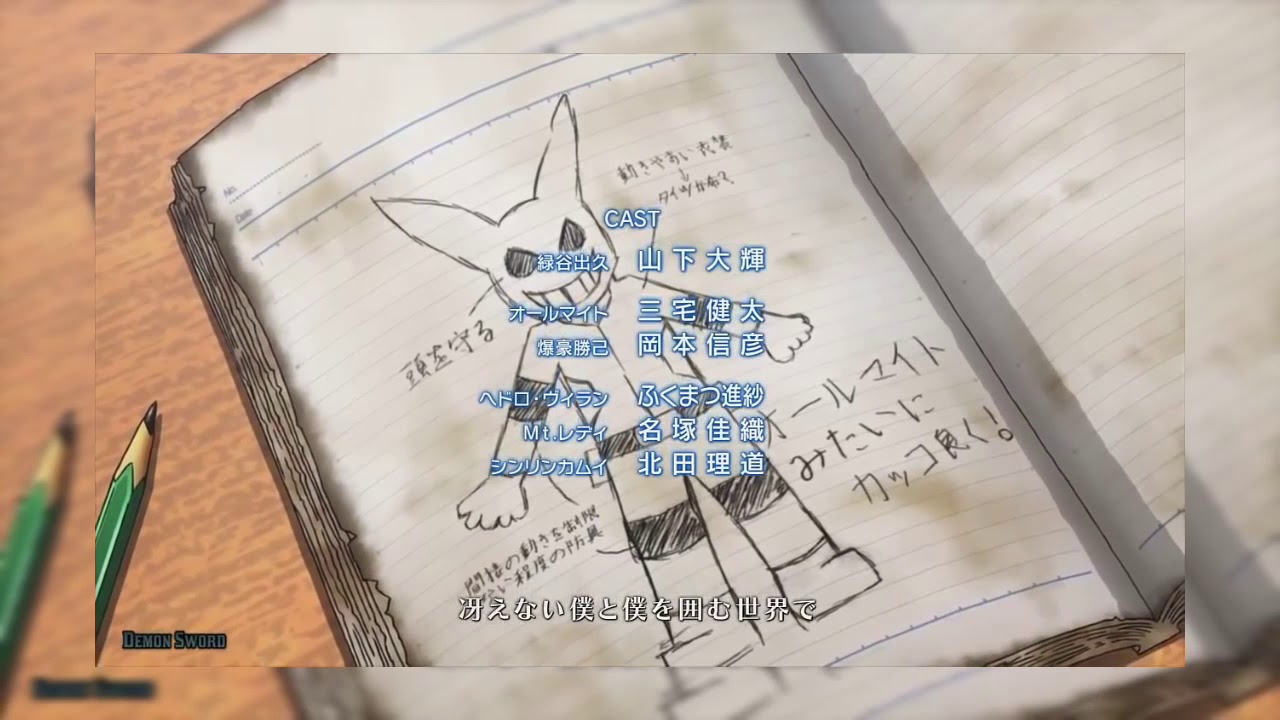 No.
Date
動きやすい衣装
↓
タイツが布て
CAST
緑谷出久 山下大輝
オールマイト 三宅健太
爆豪勝己 岡本信彦
ヘドロ・ヴィラン ふくまつ進紗
Mt.レディ 名塚佳織
シンリンカムイ 北田理道
頭を守る
オールマイト
みたいに
カッコ良く!。
間接の動きを制限
ない程度の防具
冴えない僕と僕を囲む世界で
DEMON SWORD